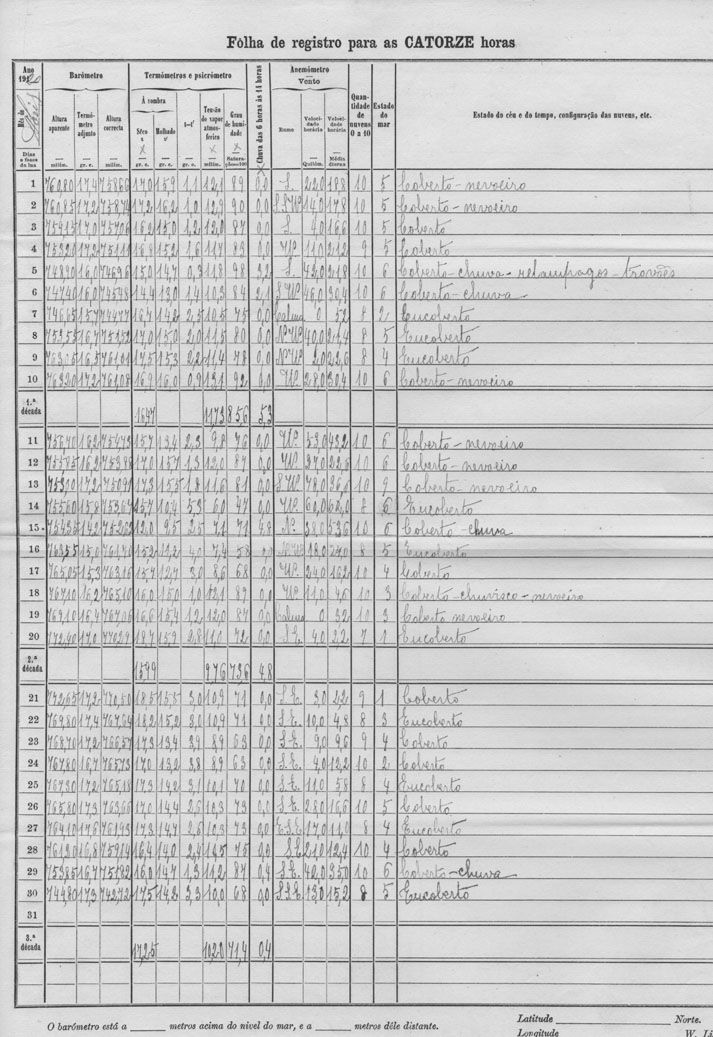 Fôlha de registro para as CATORZE horas
Ano
19
Mês de
Dias e fases da lua
Barómetro
Altura aparente
milím.
Termómetro adjunto
gr. c.
Altura correcta
milím.
Termómetros e psicrómetro
À sombra
Sêco t
gr. c.
Molhado t'
gr. c.
t-t'
gr. c.
Tensão do vapor atmosférico
milím.
Grau de humidade
Chuva das 6 horas às 14 horas
Anemómetro
Vento
Rumo
Velocidade horária
Quilóm.
Velocidade horária
Média diurna
Quantidade de nuvens 0 a 10
Estado do mar
Estado do céu e do tempo, configuração das nuvens, etc.
1 760,80 17,4 758,66 17,0 15,9 1,1 12,1 89 0,0 S. 22,0 18,8 10 5 Coberto-nevoeiro
2 760,85 17,2 758,74 17,2 16,2 1,0 12,9 90 0,0 14,0 17,8 10 5 Coberto-nevoeiro
3 16,2 15,0 1,2 12,0 87 0,0 S. 4,0 16,6 10 5 Coberto
4 83 0,0 W. 11,0 21,2 9 5 Coberto
5 748,90 16,0 746,96 15,0 14,7 0,3 11,8 98 3,2 S. 42,0 21,8 10 6 Coberto-chuva-relampagos-trovões
6 747,40 16,0 745,48 14,4 13,0 1,4 10,3 84 2,1 S.W. 46,0 30,4 10 6 Coberto-chuva
7 75 0,0 Calma 0 5,2 8 2 Encoberto
8 17,0 15,0 2,0 11,5 80 0,0 N.W. 40,0 21,4 8 5 Encoberto
9 17,5 15,3 2,2 11,4 78 0,0 N.W. 2,0 22,6 8 4 Encoberto
10 763,20 17,2 761,08 16,9 16,0 0,9 13,1 92 0,0 W. 28,0 30,4 10 6 Coberto-nevoeiro
1.ª década 164,7 117,3 85,6 5,3
11 756,70 16,2 754,73 15,7 13,4 2,3 9,8 76 0,0 W. 53,0 43,2 10 6 Coberto-nevoeiro
12 755,85 16,2 753,88 17,0 15,7 1,3 12,0 87 0,0 W. 37,0 22,6 10 6 Coberto-nevoeiro
13 17,3 15,5 1,8 11,6 81 0,0 S.W. 78,0 36,6 10 9 Coberto-nevoeiro
14 15,7 10,4 5,3 6,0 47 0,0 W. 60,0 62,0 8 6 Encoberto
15 12,0 9,5 2,5 7,4 71 4,8 N. 38,0 53,6 10 6 Coberto-chuva
16 15,2 11,2 4,0 7,4 58 0,0 18,0 8 5 Encoberto
17 765,05 15,3 763,16 15,7 12,7 3,0 8,6 68 0,0 W. 24,0 16,2 10 4 Coberto
18 767,10 16,2 765,10 16,0 15,0 1,0 12,1 89 0,0 W. 11,0 4,6 10 3 Coberto-chuvisco-nevoeiro
19 769,10 16,4 767,06 16,6 15,4 1,2 12,0 87 0,0 Calma 0 3,2 10 3 Coberto nevoeiro
20 772,40 17,0 770,29 18,7 15,9 2,8 11,0 72 0,0 S.E. 4,0 2,2 7 1 Encoberto
2.ª década 159,9 97,6 73,6 4,8
21 772,65 17,2 770,50 18,5 15,5 3,0 10,9 71 0,0 S.E. 3,0 2,2 9 1 Coberto
22 769,80 17,4 767,64 18,2 15,2 3,0 10,9 71 0,0 S.E. 10,0 4,8 8 3 Encoberto
23 768,70 17,2 766,57 17,3 13,4 3,9 8,9 63 0,0 S.E. 9,0 9,6 9 4 Coberto
24 767,80 16,7 765,73 17,0 13,2 3,8 8,9 63 0,0 S.E. 4,0 12,2 10 2 Coberto
25 767,30 17,2 765,18 17,3 14,2 3,1 10,1 70 0,0 S.E. 11,0 5,8 8 4 Encoberto
26 765,80 17,3 763,66 17,0 14,4 2,6 10,3 73 0,0 S.E. 28,0 16,6 10 5 Coberto
27 764,10 17,6 761,93 17,3 14,7 2,6 10,3 73 0,0 E.S.E. 17,0 11,0 8 4 Encoberto
28 761,20 16,8 759,14 16,4 14,0 2,4 10,5 75 0,0 S.E. 21,0 12,4 10 4 Coberto
29 753,85 16,7 751,82 16,0 14,7 1,3 11,2 87 0,4 S.E. 42,0 35,0 10 6 Coberto-chuva
30 744,80 17,3 742,72 17,5 14,2 3,3 10,0 68 0,0 S.S.E. 13,0 15,2 8 5 Encoberto
31
3.ª década 172,5 102,0 71,4 0,4
O barómetro está a ______ metros acima do nivel do mar, e a ______ metros dêle distante.
Latitude ______ Norte.
Longitude W.